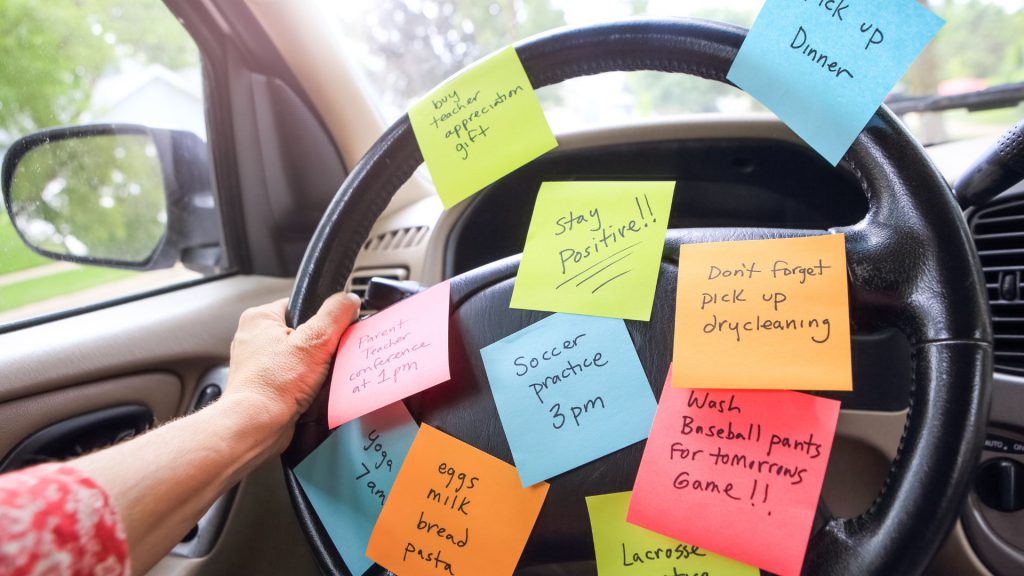 Pick up
Dinner
buy
teacher
appreciation
gift
Stay
Positive!!
Don't Forget
pick up
drycleaning
Parent
Teacher
conference
at 1pm
Soccer
practice
3pm
Wash
Baseball pants
For tomorrows
Game!!
Yoga
7am
eggs
milk
bread
pasta
Lacrosse
AUTO